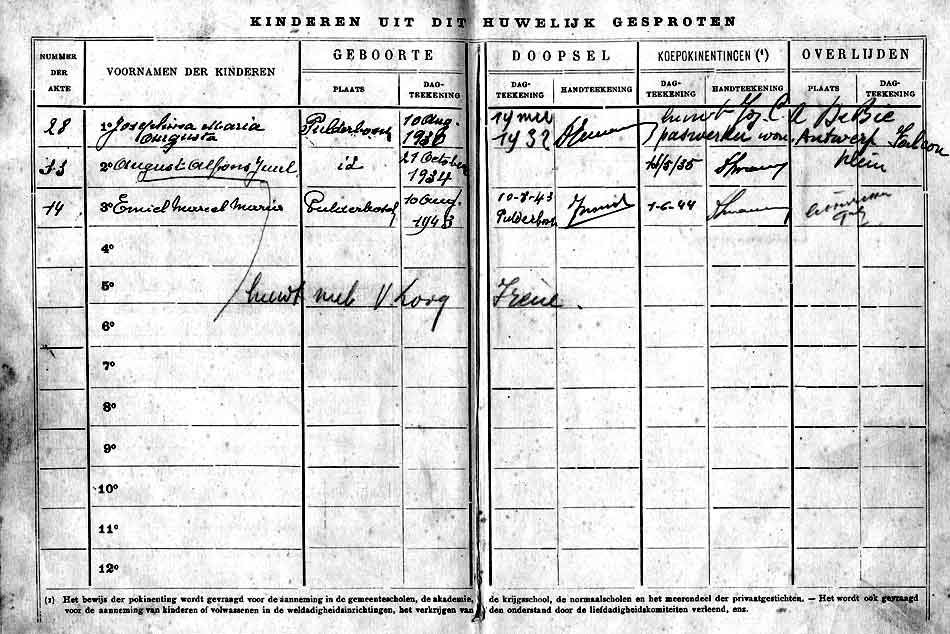 KINDEREN UIT DIT HUWELIJK GESPROTEN
NUMMER DER AKTE
VOORNAMEN DER KINDEREN
GEBOORTE
DOOPSEL
KOEPOKINENTINGEN (¹)
OVERLIJDEN
PLAATS
DAG-TEEKENING
DAG-TEEKENING
HANDTEEKENING
DAG-TEEKENING
HANDTEEKENING
PLAATS
DAG-TEEKENING
28 1º Josephina Maria Augusta Pulderbosch 10 Aug. 1930 14 mei 1932 huwt Jos. C. A De Bie
won. Antwerp
33 2º August Alfons Juul id 21 October 1934 11/5/35
14 3º Emiel Marcel Marie Pulderbosch 10 Aug. 1943 10-8-43 Pulderbosch 1-6-44
4º
5º
huwt met V Loog Irene.
6º
7º
8º
9º
10º
11º
12º
(1) Het bewijs der pokinenting wordt gevraagd voor de aanneming in de gemeentescholen, de akademie, de krijgsschool, de normaalscholen en het meerendeel der privaatgestichten. — Het wordt ook gevraagd
voor de aanneming van kinderen of volwassenen in de weldadigheidsinrichtingen, het verkrijgen van den onderstand door de liefdadigheidskomiteiten verleend, enz.